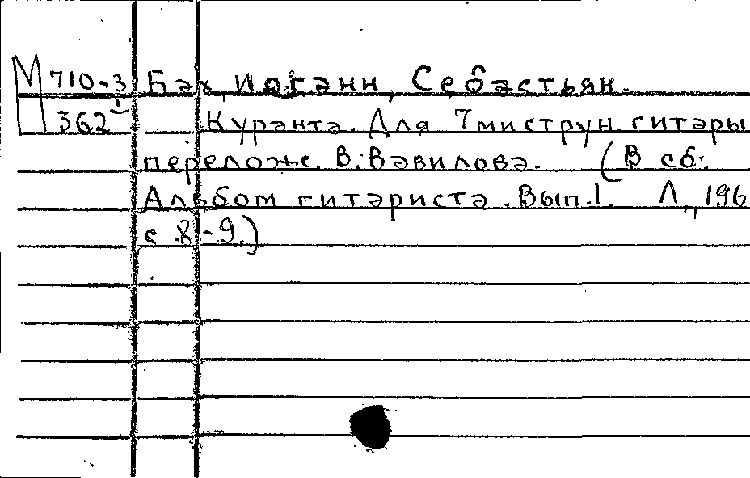 М 710-3 Бах, Иоганн Себастьян.
362 Куранта. Для 7миструн гитары
перелож. В. Вавилова. (В сб:
Альбом гитариста. Вып. 1. Л., 196
с 8-9.)